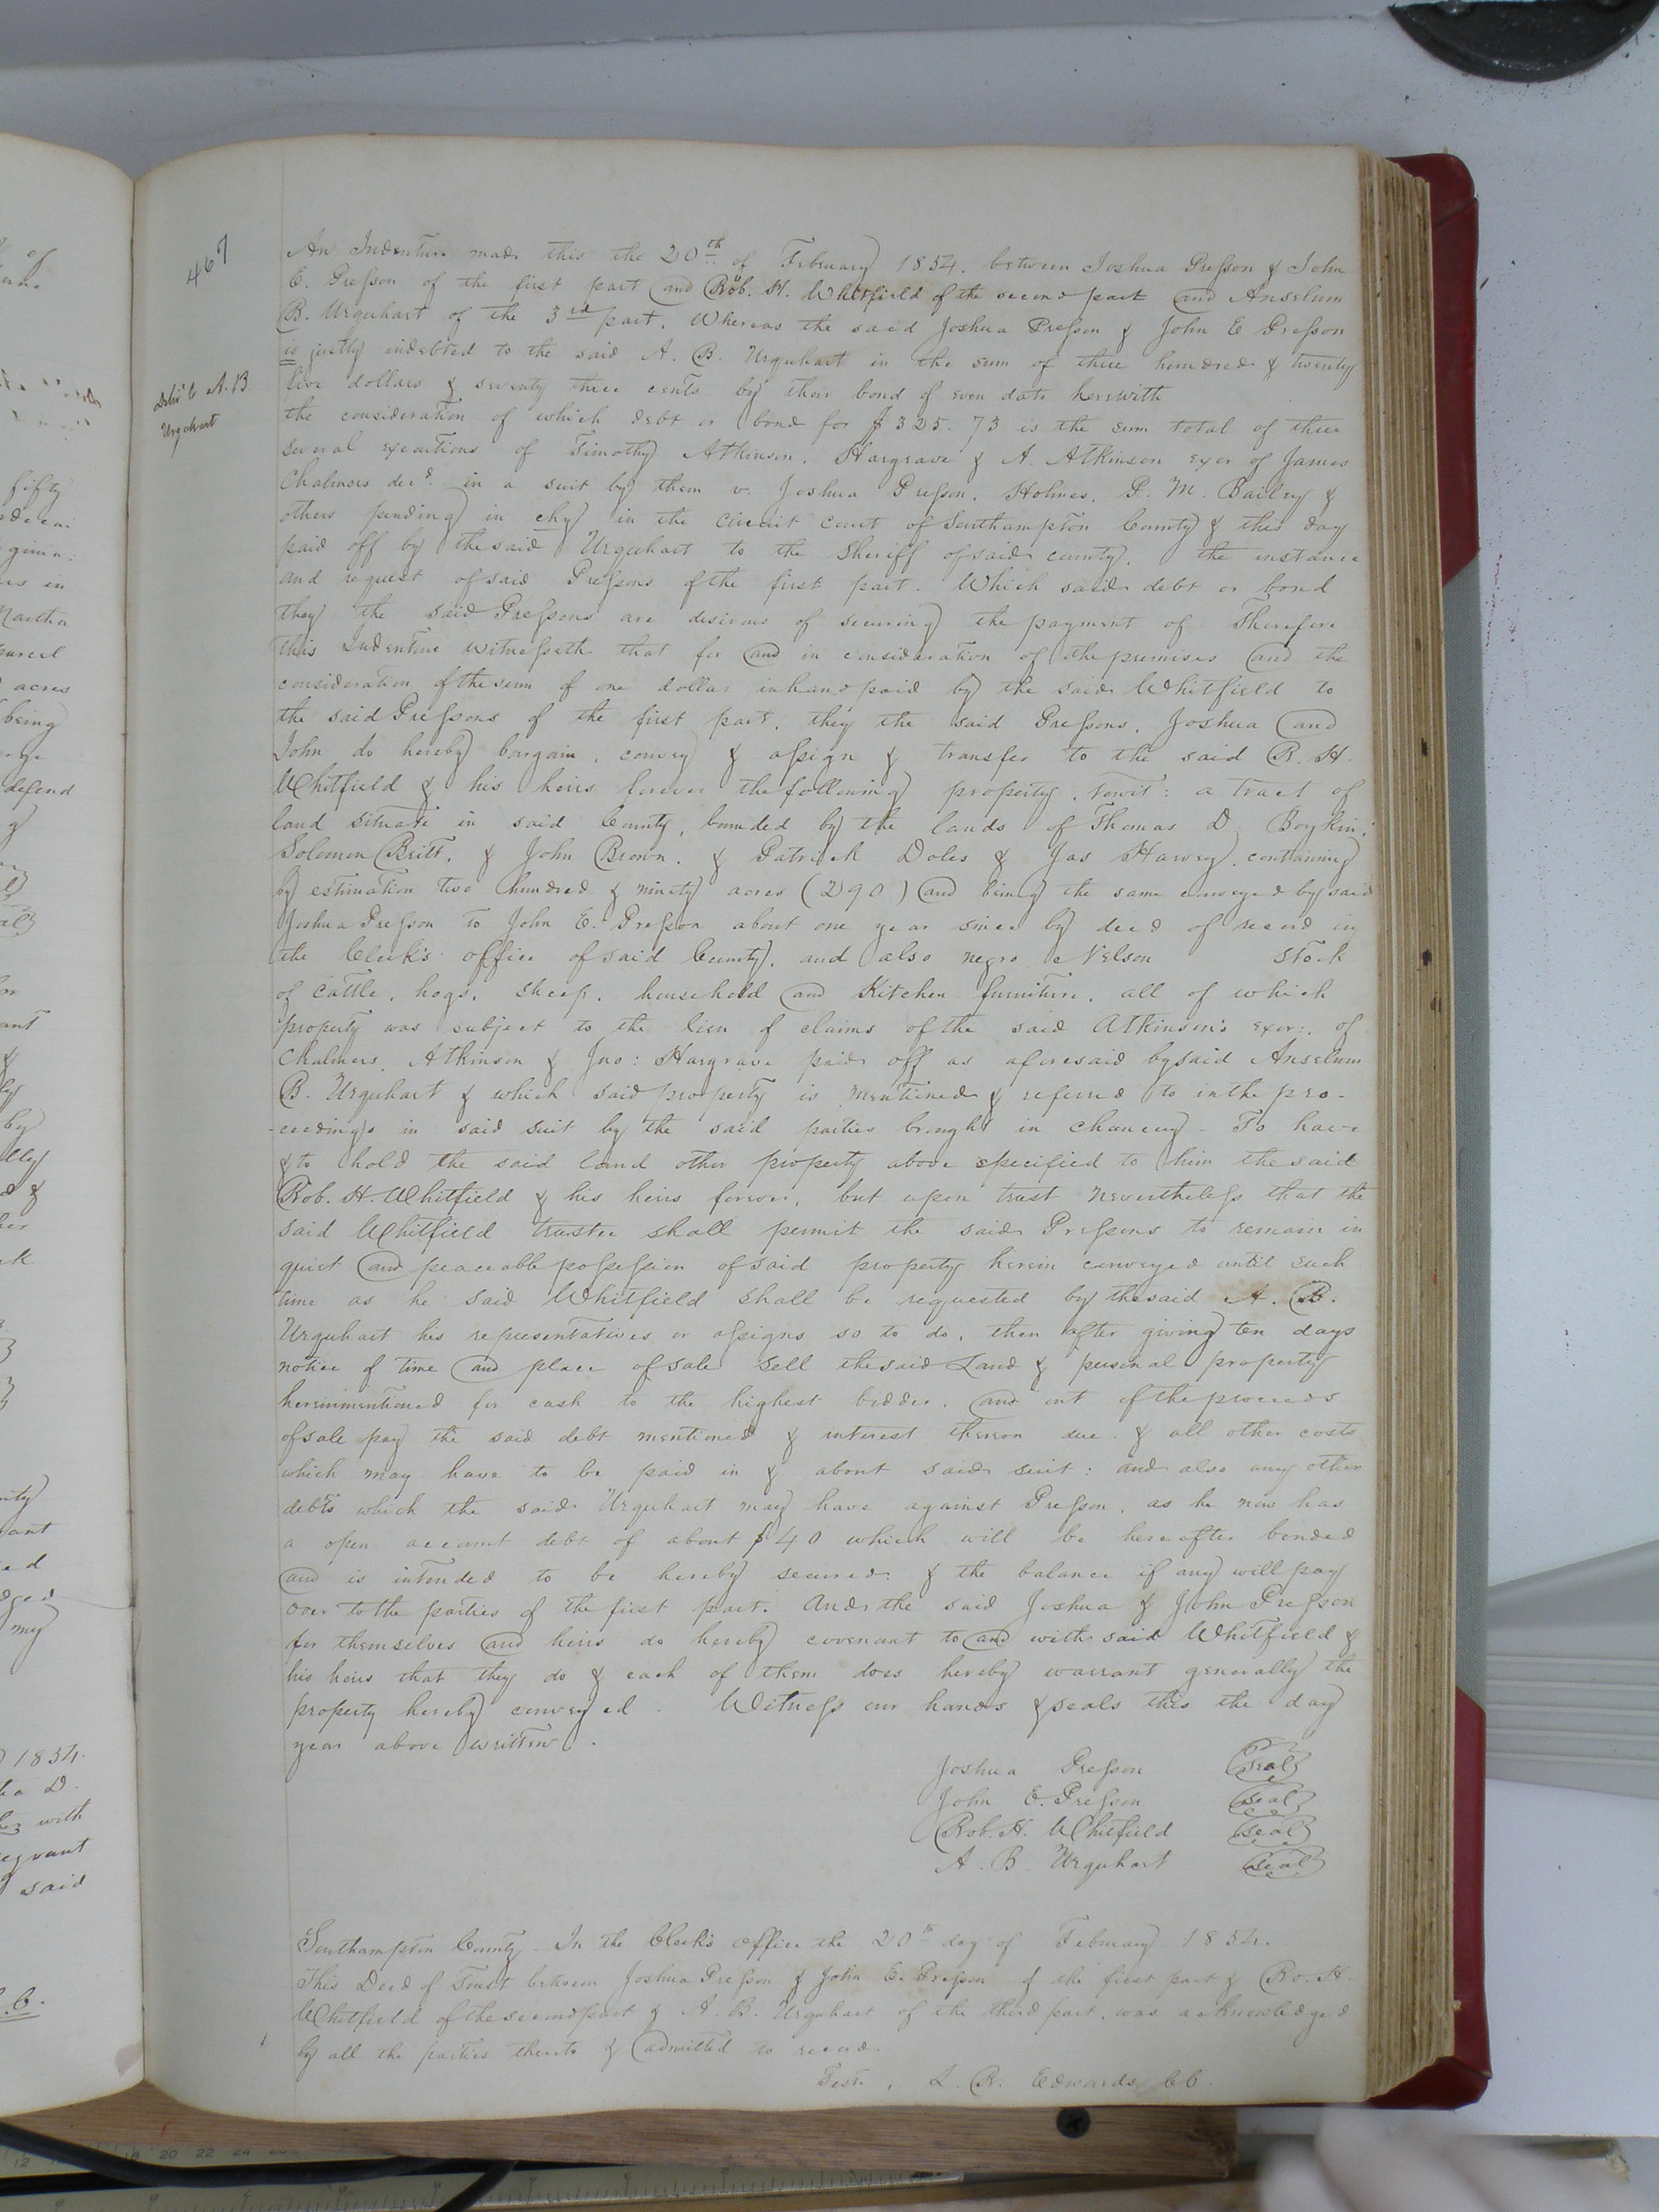 467
An Indenture made this the 20th of February 1854. between Joshua Presson & John
E. Presson of the first part and Rob. H. Whitfield of the second part and Anselum
B. Urquhart of the 3rd part. Whereas the said Joshua Presson & John E Presson
is justly indebted to the said A. B. Urquhart in the sum of three hundred & twenty
five dollars & seventy three cents by their bond of even date herewith
A. B
Urquhart
the consideration of which debt or bond for $325.73 is the sum total of three
several executions of Timothy Atkinson. Hargrave & A. Atkinson exor of James
Chalmers decd. in a suit by them v. Joshua Presson. Holmes. P. M. Bailey &
others pending in chy in the circuit court of Southampton County & this day
paid off by the said Urquhart to the Sheriff of said county. the instance
and request of said Pressons of the first part. Which said debt or bond
they the said Pressons are desirous of securing the payment of. Therefore
this Indenture witnesseth that for and in consideration of the premises and the
consideration of the sum of one dollar in hand paid by the said Whitfield to
the said Pressons of the first part. they the said Pressons. Joshua and
John do hereby bargain, convey & assign & transfer to the said R. H.
Whitfield & his heirs forever the following property, towit: a tract of
land situate in said County, bounded by the lands of Thomas D. Boykin.
Solomon Britt. & John Brown. & Patrick Doles & Jas Harvey. containing
by estimation two hundred & ninety acres (290) and being the same conveyed by said
Joshua Presson to John E. Presson about one year since by deed of record in
the Clerk's office of said County. and also negro Nelson stock
of cattle, hogs, sheep, household and Kitchen furniture. all of which
property was subject to the lien of claims of the said Atkinson's exor:. of
Chalmers. Atkinson & Jno: Hargrave paid off as aforesaid by said Anselum
B. Urquhart & which said property is mentioned & referred to in the pro-
-ceedings in said suit by the said parties brought in chancery - To have
& to hold the said land other property above specified to him the said
Rob. H. Whitfield & his heirs forever, but upon trust nevertheless that the
said Whitfield trustee shall permit the said Pressons to remain in
quiet and peaceable possession of said property herein conveyed until such
time as he said Whitfield shall be requested by the said A. B.
Urquhart his representatives or assigns so to do, then after giving ten days
notice of time and place of sale sell the said Land & personal property
hereinmentioned for cash to the highest bidder. and out of the proceeds
of sale pay the said debt mentioned & interest thereon due. & all other costs
which may have to be paid in & about said suit: and also any other
debts which the said Urquhart may have against Presson. as he now has
a open account debt of about $40 which will be hereafter bonded
and is intended to be hereby secured: & the balance if any will pay
over to the parties of the first part. And the said Joshua & John Presson
for themselves and heirs do hereby covenant to and with said Whitfield &
his heirs that they do & each of them does hereby warrant generally the
property hereby conveyed. Witness our hands & seals this the day
year above written.
Joshua Presson seal
John E. Presson seal
Rob. H. Whitfield seal
A. B. Urquhart seal
Southampton County - In the Clerk's office the 20th day of February 1854.
This Deed of Trust between Joshua Presson & John E. Presson of the first part & Ro. H.
Whitfield of the second part & A. B. Urquhart of the third part. was acknowledged
by all the parties thereto & admitted to record.
Test. L. R. Edwards CC.